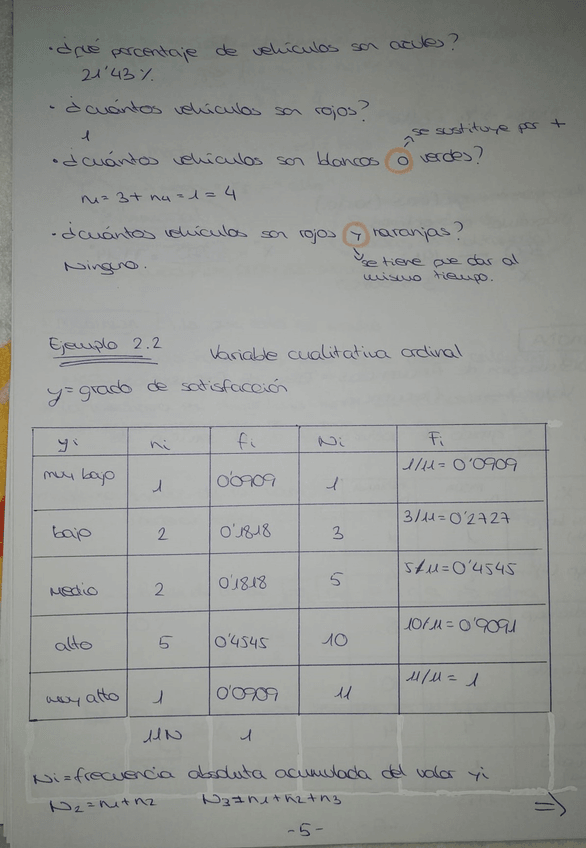 · ¿qué porcentaje de vehículos son azules?
21'43%.
· ¿cuántos vehículos son rojos?
1
se sustituye por +
· ¿cuántos vehículos son blancos o verdes?
n1= 3+ n4 = 1 = 4
· ¿cuántos vehículos son rojos y naranjas?
Ninguno.
se tiene que dar al
mismo tiempo.
Ejemplo 2.2 Variable cualitativa ordinal
y= grado de satisfacción
yi ni fi Ni Fi
muy bajo 1 0'0909 1 1/11= 0'0909
bajo 2 0'1818 3 3/11= 0'2727
Medio 2 0'1818 5 5/11= 0'4545
alto 5 0'4545 10 10/11= 0'9091
muy alto 1 0'0909 11 11/11= 1
11 N 1
Ni = frecuencia absoluta acumulada del valor yi
N2 = n1+n2 N3 = n1+n2+n3 ⇒
-5-